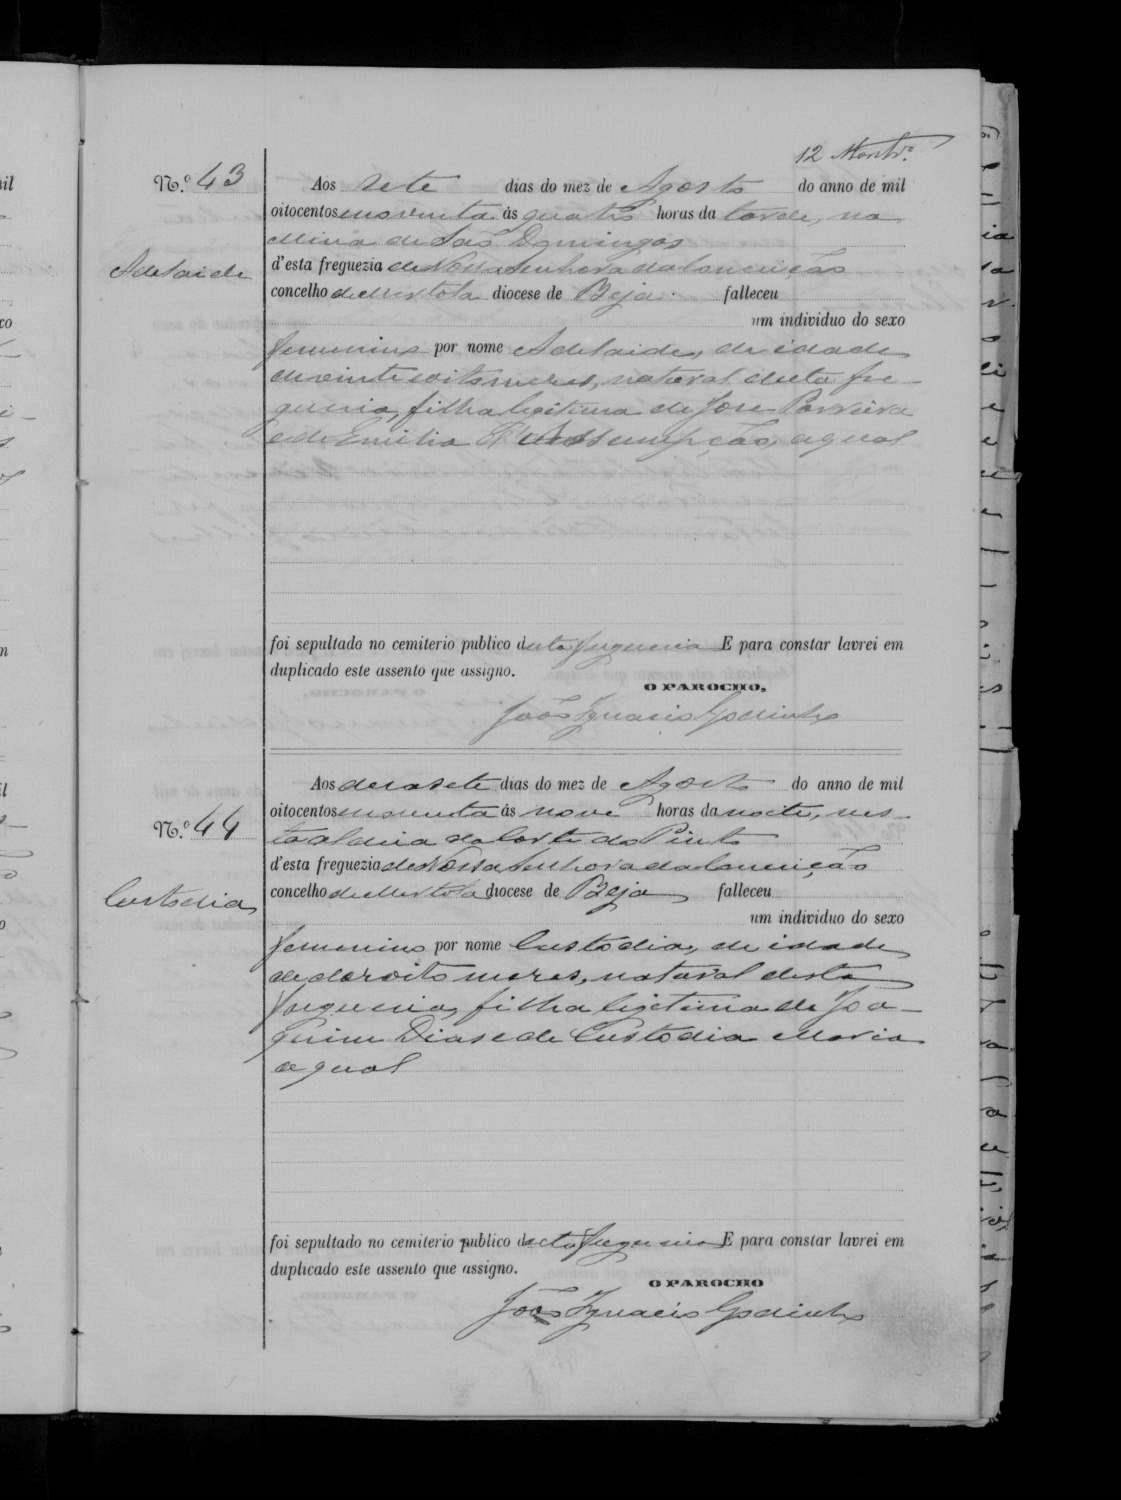 12
N.º 43
Aos sete dias do mez de Agosto do anno de mil
oitocentos noventa ás quatro horas da tarde, na
Mina de São Domingos
Adelaide
d'esta freguezia de Nossa Senhora da Conceição
concelho de Mertola diocese de Beja. falleceu
um individuo do sexo
femenino por nome Adelaide, de idade
de vinte e oito mezes, natural desta fre-
guezia, filha legitima de José Parreira
e de Emilia d'Assumpção, a qual
foi sepultado no cemiterio publico desta freguezia E para constar lavrei em
duplicado este assento que assigno.
O PAROCHO,
João Ignacio Godinho
Aos desasete dias do mez de Agosto do anno de mil
N.º 44
oitocentos noventa ás nove horas da noite, nes-
ta aldeia da Corte do Pinto
d'esta freguezia de Nossa Senhora da Conceição
concelho de Mertola diocese de Beja falleceu
Custodia
um individuo do sexo
femenino por nome Custodia, de idade
de dezoito mezes, natural desta
freguezia, filha legitima de Joa-
quim Dias e de Custodia Maria
a qual
foi sepultado no cemiterio publico desta freguezia E para constar lavrei em
duplicado este assento que assigno.
O PAROCHO
João Ignacio Godinho